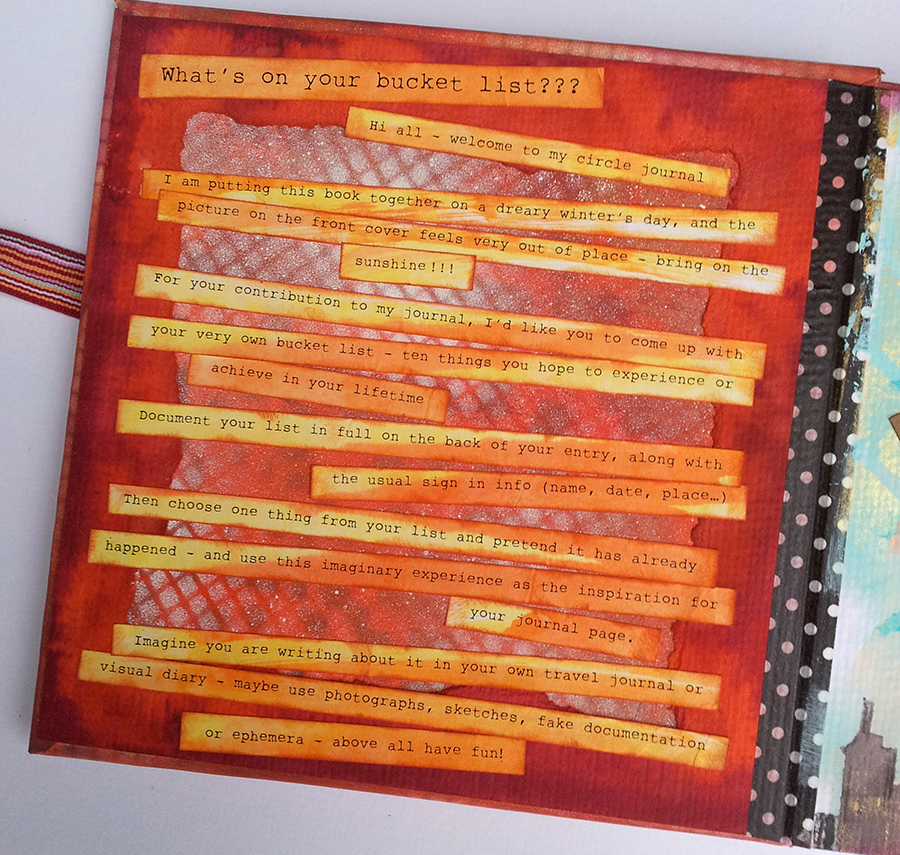 What's on your bucket list???
Hi all - welcome to my circle journal
I am putting this book together on a dreary winter's day, and the
picture on the front cover feels very out of place - bring on the
sunshine!!!
For your contribution to my journal, I'd like you to come up with
your very own bucket list - ten things you hope to experience or
achieve in your lifetime
Document your list in full on the back of your entry, along with
the usual sign in info (name, date, place…)
Then choose one thing from your list and pretend it has already
happened - and use this imaginary experience as the inspiration for
your journal page.
Imagine you are writing about it in your own travel journal or
visual diary - maybe use photographs, sketches, fake documentation
or ephemera - above all have fun!